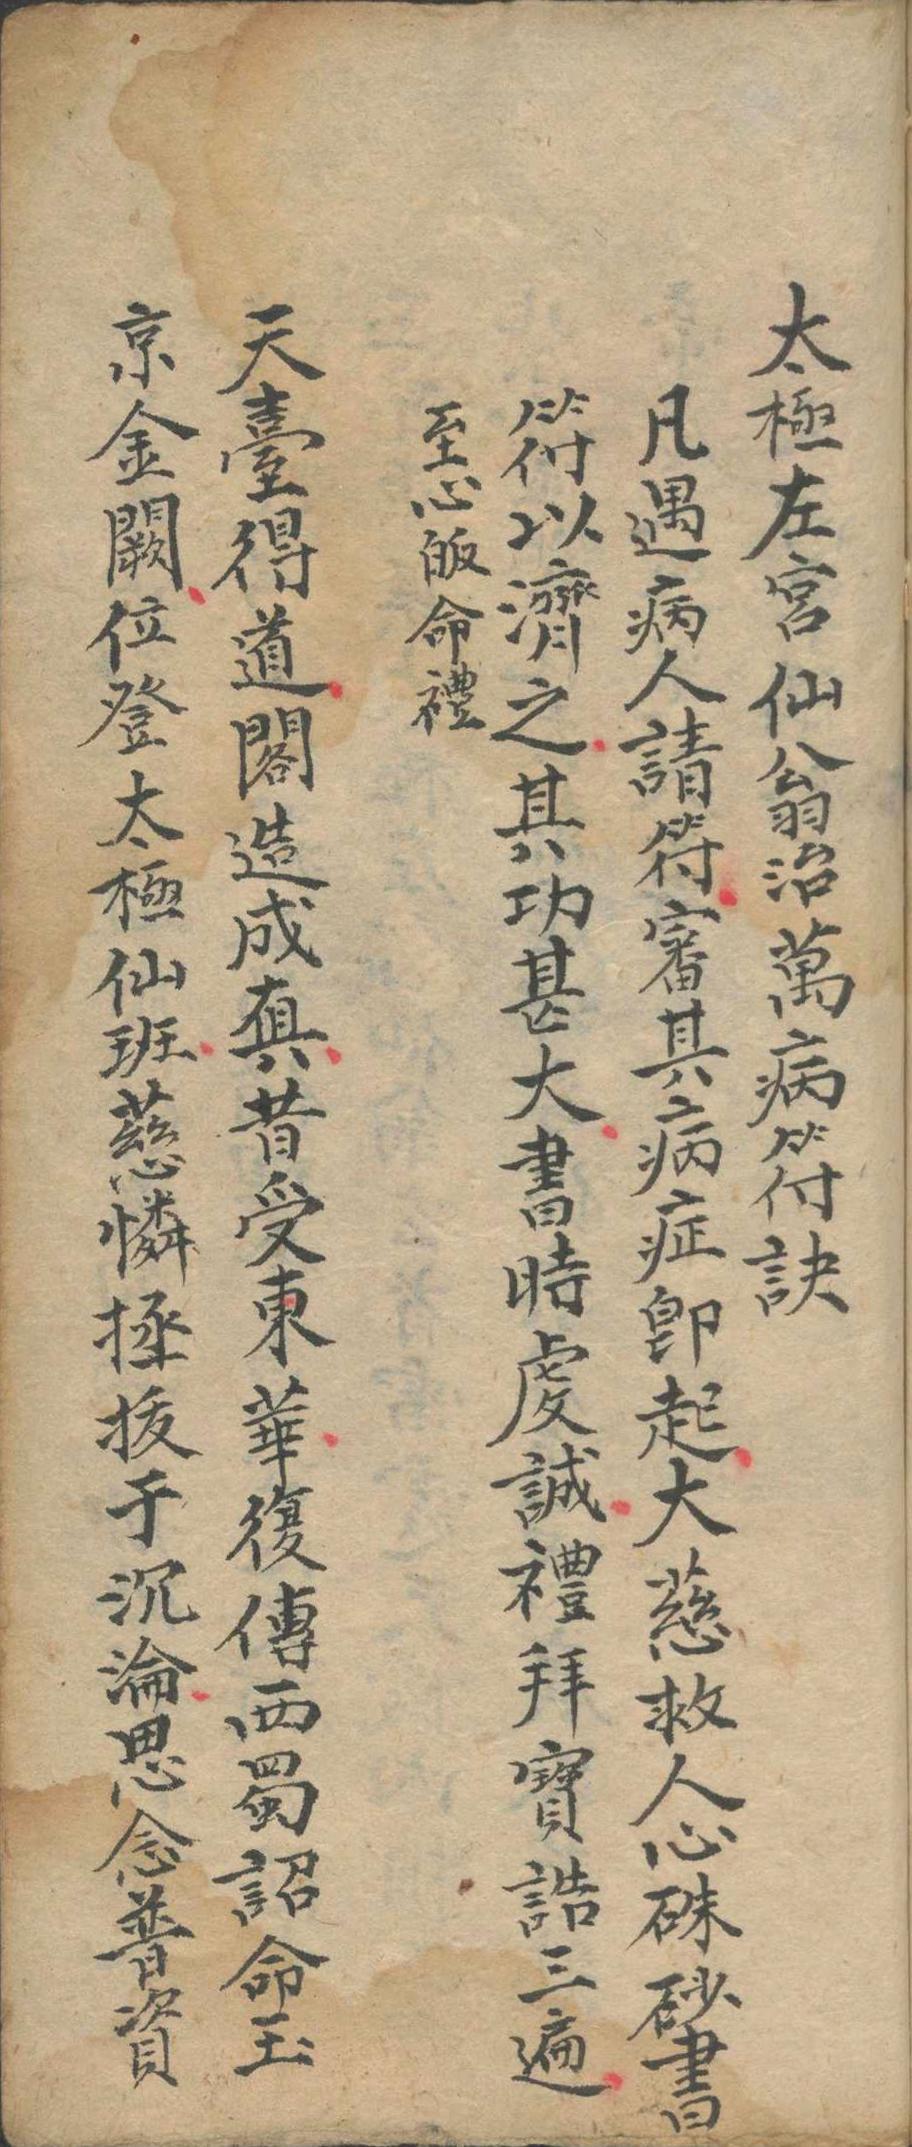 太極左宮仙翁治萬病符訣
凡遇病人請符審其病症卽起大慈救人心硃砂書
符以濟之其功甚大書時虔誠禮拜寶誥三遍
至心皈命禮
天臺得道閣造成真昔受東華復傳西蜀詔命玉
京金闕位登太極仙班慈憐拯拔于沉淪思念普資